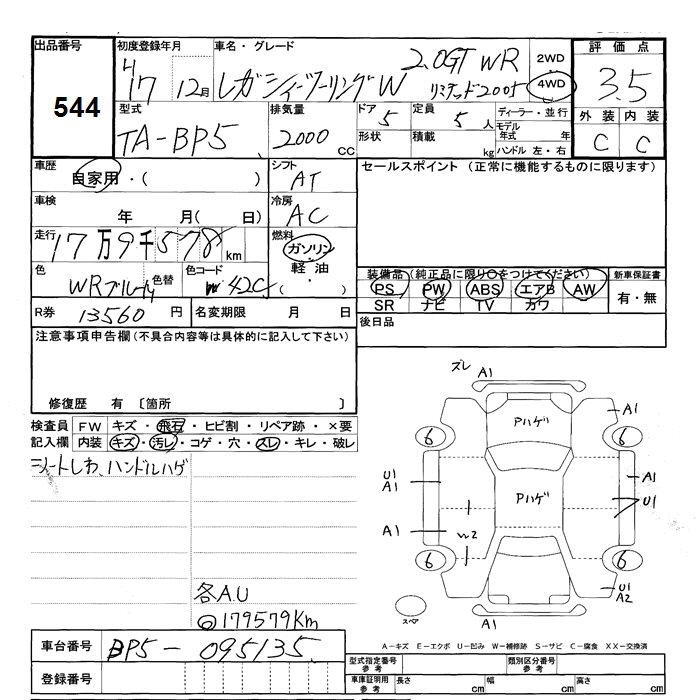 出品番号 初度登録年月 車名・グレード 2.0GT WR 2WD 評価点
544 H17 12月 レガシィツーリングW リミテッド2005 4WD 3.5
型式 排気量 ドア 定員 ディーラー・並行 外装 内装
TA-BP5 2000cc 5 5人 モデル年式 年 C C
形状 積載 kg ハンドル 左・右
車歴 自家用・( ) シフト AT セールスポイント (正常に機能するものに限ります)
車検 年 月( 日) 冷房 AC
走行 17万9千578km 燃料 ガソリン
軽油
・
( )
色 WRブルー 色替 色コード 42C 装備品 (純正品に限り○をつけてください) 新車保証書
PS PW ABS エアB AW 有・無
SR ナビ TV カワ
R券 13560円 名変期限 月 日 後日品
注意事項申告欄(不具合内容等は具体的に記入して下さい)
修復歴 有 [箇所 ]
検査員 FW キズ・飛石・ヒビ割・リペア跡・×要
記入欄 内装 キズ・汚し・コゲ・穴・スレ・キレ・破レ
シートしわ、ハンドルハゲ
各A.U
◎179579Km
ズレ A1
Pハゲ A1
6 6
U1 A1 Pハゲ A1
U1
A1 W2
6 6
U1 A2
スペア A1
A-キズ E-エクボ U-凹み W-補修跡 S-サビ C-腐食 XX-交換済
車台番号 BP5-095135 型式指定番号 参考 類別区分番号 参考
登録番号 車庫証明用 参考 長さ cm 幅 cm 高さ cm